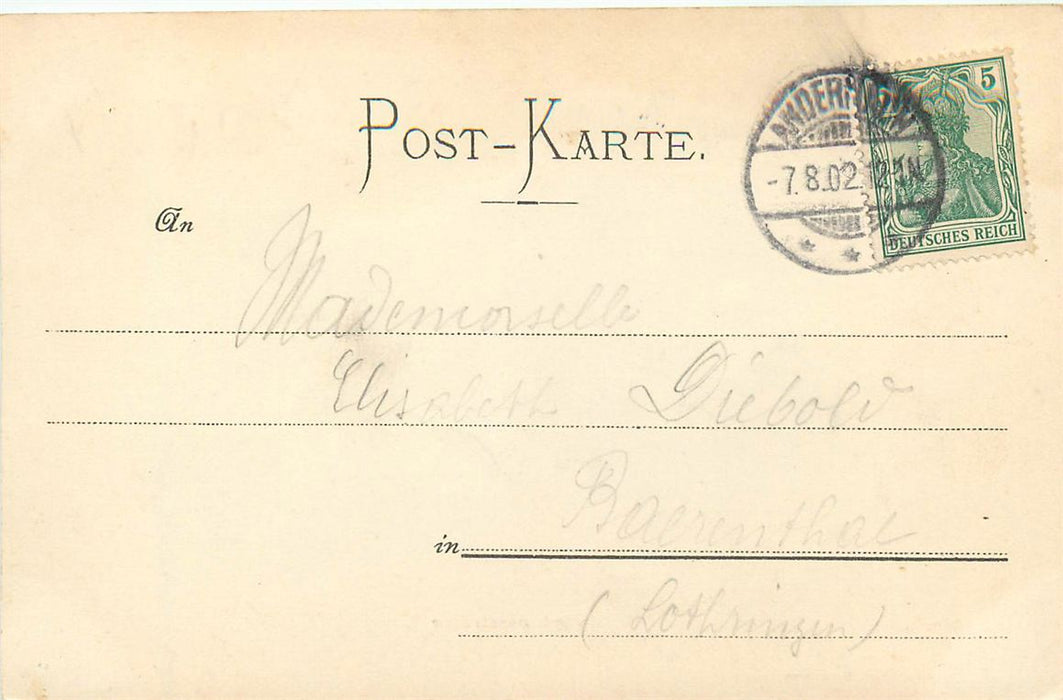 POST-KARTE.
5
-7.8.02.
DEUTSCHES REICH
An
Mademoiselle
Elisabeth Diebold
in Baerenthal
(Lothringen)